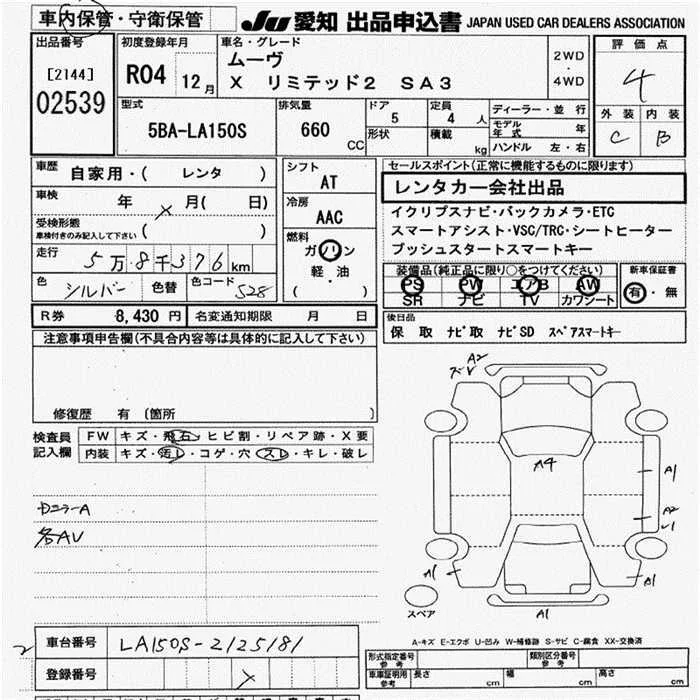 車内保管・守衛保管
JU 愛知 出品申込書 JAPAN USED CAR DEALERS ASSOCIATION
出品番号
[2144]
02539
初度登録年月
R04 12月
車名・グレード
ムーヴ
X リミテッド2 SA3
2WD
・
4WD
評価点
4
外装 内装
C B
型式
5BA-LA150S
排気量
660
CC
ドア
5
形状
定員
4 人
積載
kg
ディーラー・並行
モデル年式 年
ハンドル 左・右
車歴
自家用・( レンタ )
車検
年 月( 日)
受検形態
車検付きのみ記入して下さい ( )
走行
5万8千376km
色
シルバー
色替
色コード
S28
シフト
AT
冷房
AAC
燃料
ガソリン
軽・油
( )
セールスポイント(正常に機能するものに限ります)
レンタカー会社出品
イクリプスナビ・バックカメラ・ETC
スマートアシスト・VSC/TRC・シートヒーター
プッシュスタートスマートキー
装備品(純正品に限り○をつけてください)
PS PW エアB AW
SR ナビ TV カワシート
新車保証書
有・無
R券 8,430 円
名変通知期限 月 日
後日品
保 取 ナビ取 ナビSD スペアスマートキー
注意事項申告欄(不具合内容等は具体的に記入して下さい)
修復歴 有 〔箇所 〕
検査員
記入欄
FW キズ・飛石・ヒビ割・リペア跡・X要
内装 キズ・汚レ・コゲ・穴・スレ・キレ・破レ
DミラーA
各AU
A2
A4
A1
A2
A1
A1
A1
スペア
A-キズ E-エクボ U-凹み W-補修跡 S-サビ C-腐食 XX-交換済
車台番号
LA150S-2125181
登録番号
形式指定番号
参考
類別区分番号
参考
車庫証明用
参考
長さ cm 幅 cm 高さ cm